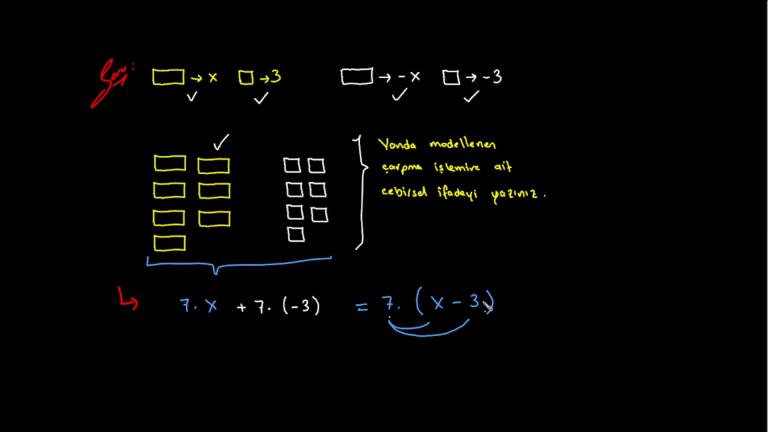 Soru:
→ x → 3 → -x → -3
Yanda modellenen
çarpma işlemine ait
cebirsel ifadeyi yazınız.
7. x + 7. (-3) = 7. (x - 3)